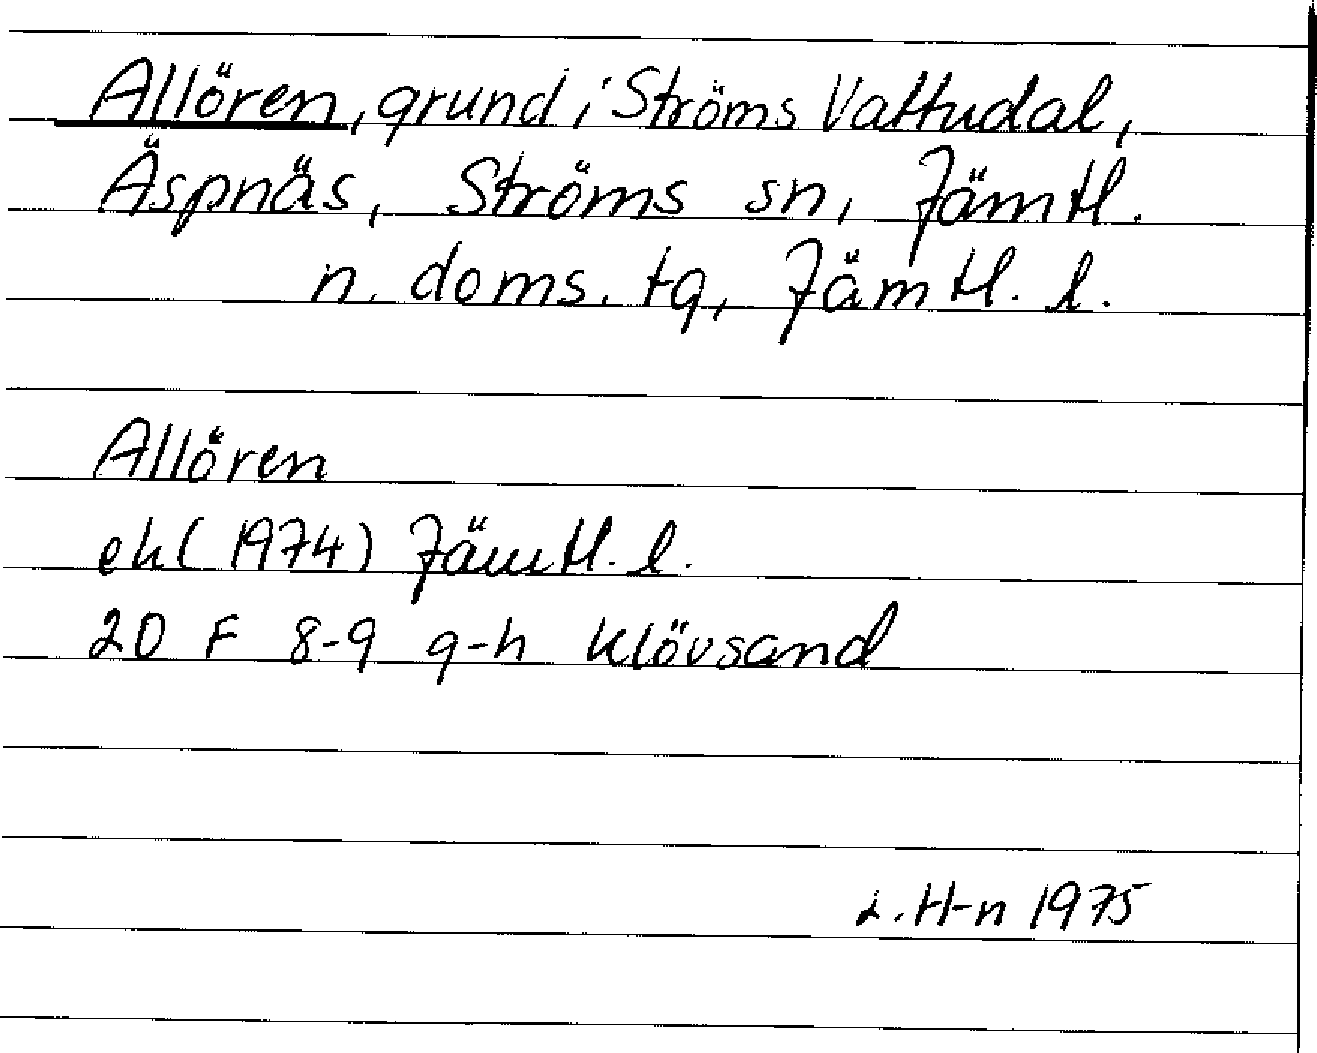 Allören, grund i Ströms Vattudal,
Äspnäs, Ströms sn, Jämtl.
n. doms. tg, Jämtl. l.
Allören
ek (1974) Jämtl. l.
20 F 8-9 g-h Klövsand
L. H-n 1975